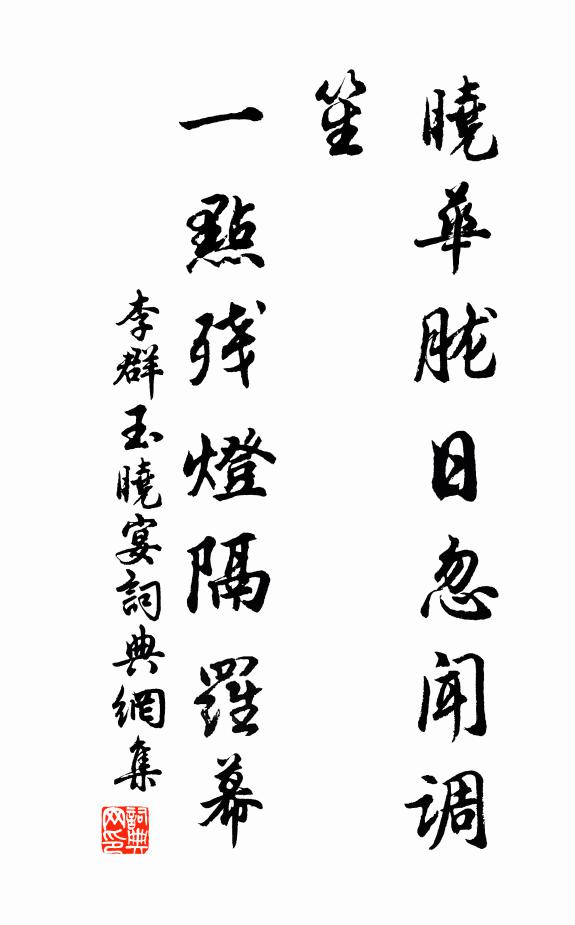 曉華胧日忽聞调
笙
一點残燈隔羅幕
李群玉曉宴詞典網集
詞典网印